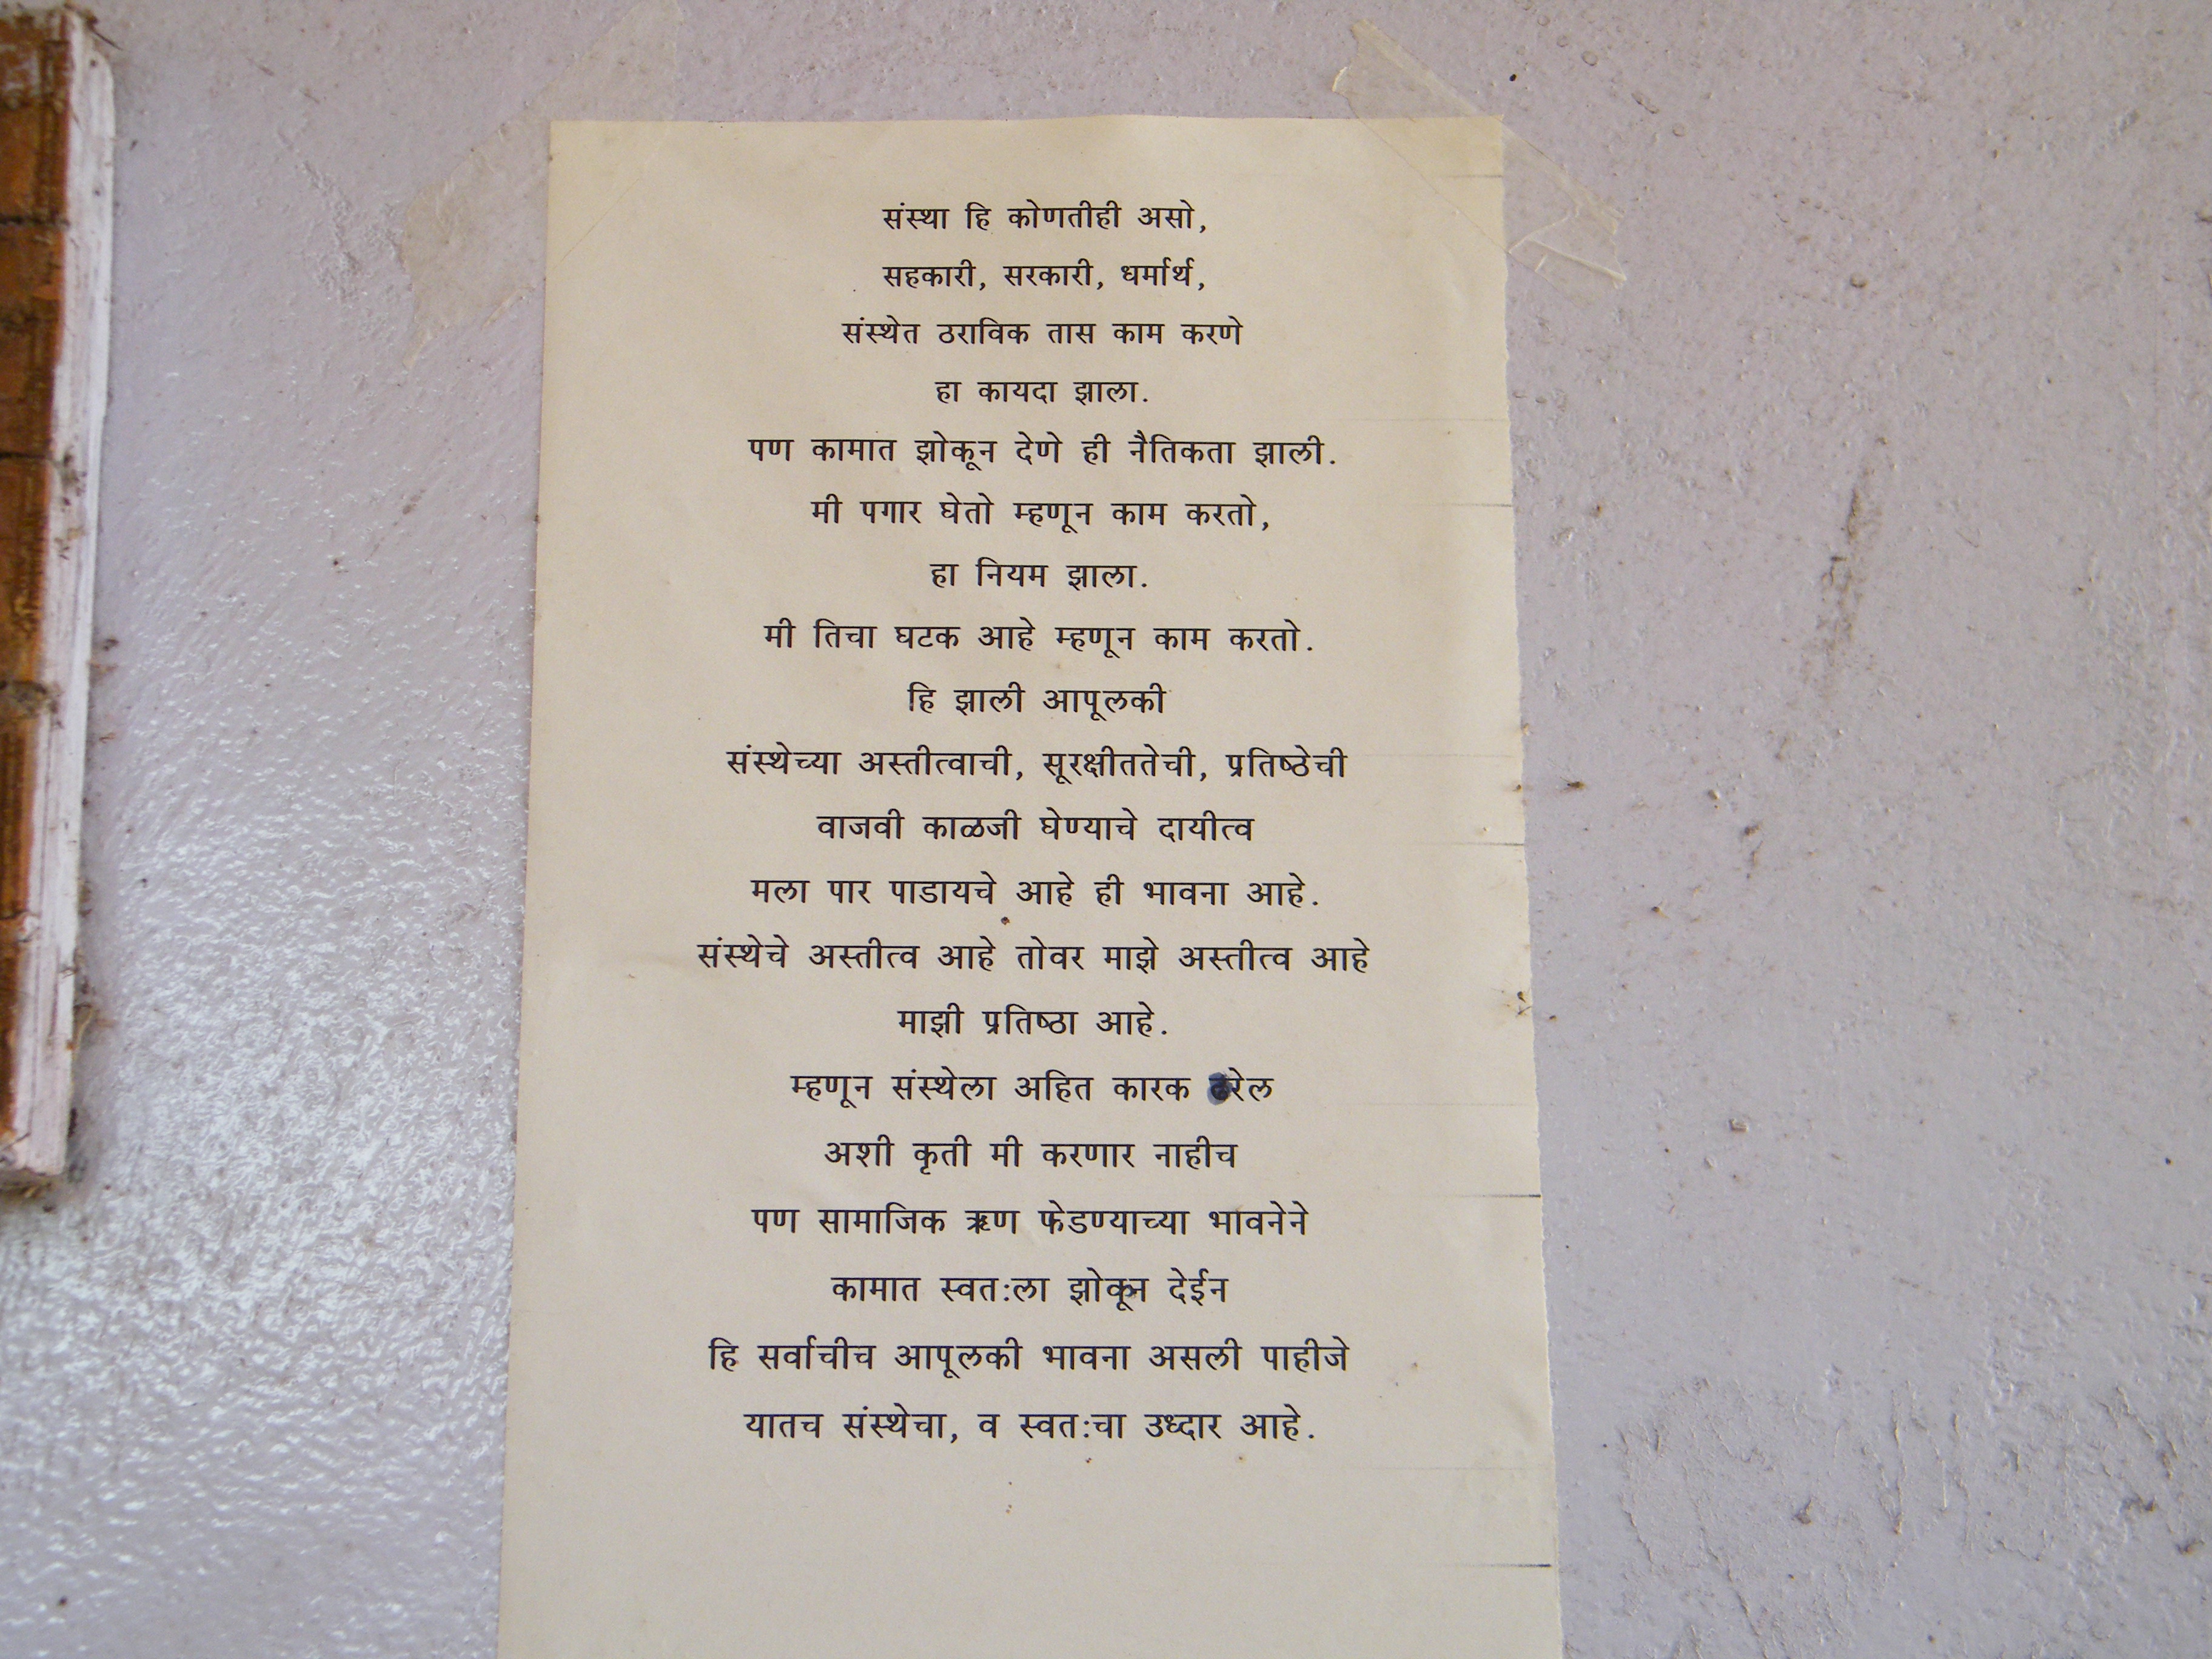 संस्था हि कोणतीही असो,
सहकारी, सरकारी, धर्मार्थ,
संस्थेत ठराविक तास काम करणे
हा कायदा झाला.
पण कामात झोकून देणे ही नैतिकता झाली.
मी पगार घेतो म्हणून काम करतो,
हा नियम झाला.
मी तिचा घटक आहे म्हणून काम करतो.
हि झाली आपूलकी
संस्थेच्या अस्तीत्वाची, सूरक्षीततेची, प्रतिष्ठेची
वाजवी काळजी घेण्याचे दायीत्व
मला पार पाडायचे आहे ही भावना आहे.
संस्थेचे अस्तीत्व आहे तोवर माझे अस्तीत्व आहे
माझी प्रतिष्ठा आहे.
म्हणून संस्थेला अहित कारक ठरेल
अशी कृती मी करणार नाहीच
पण सामाजिक ऋण फेडण्याच्या भावनेने
कामात स्वतःला झोकून देईन
हि सर्वाचीच आपूलकी भावना असली पाहीजे
यातच संस्थेचा, व स्वतःचा उध्दार आहे.